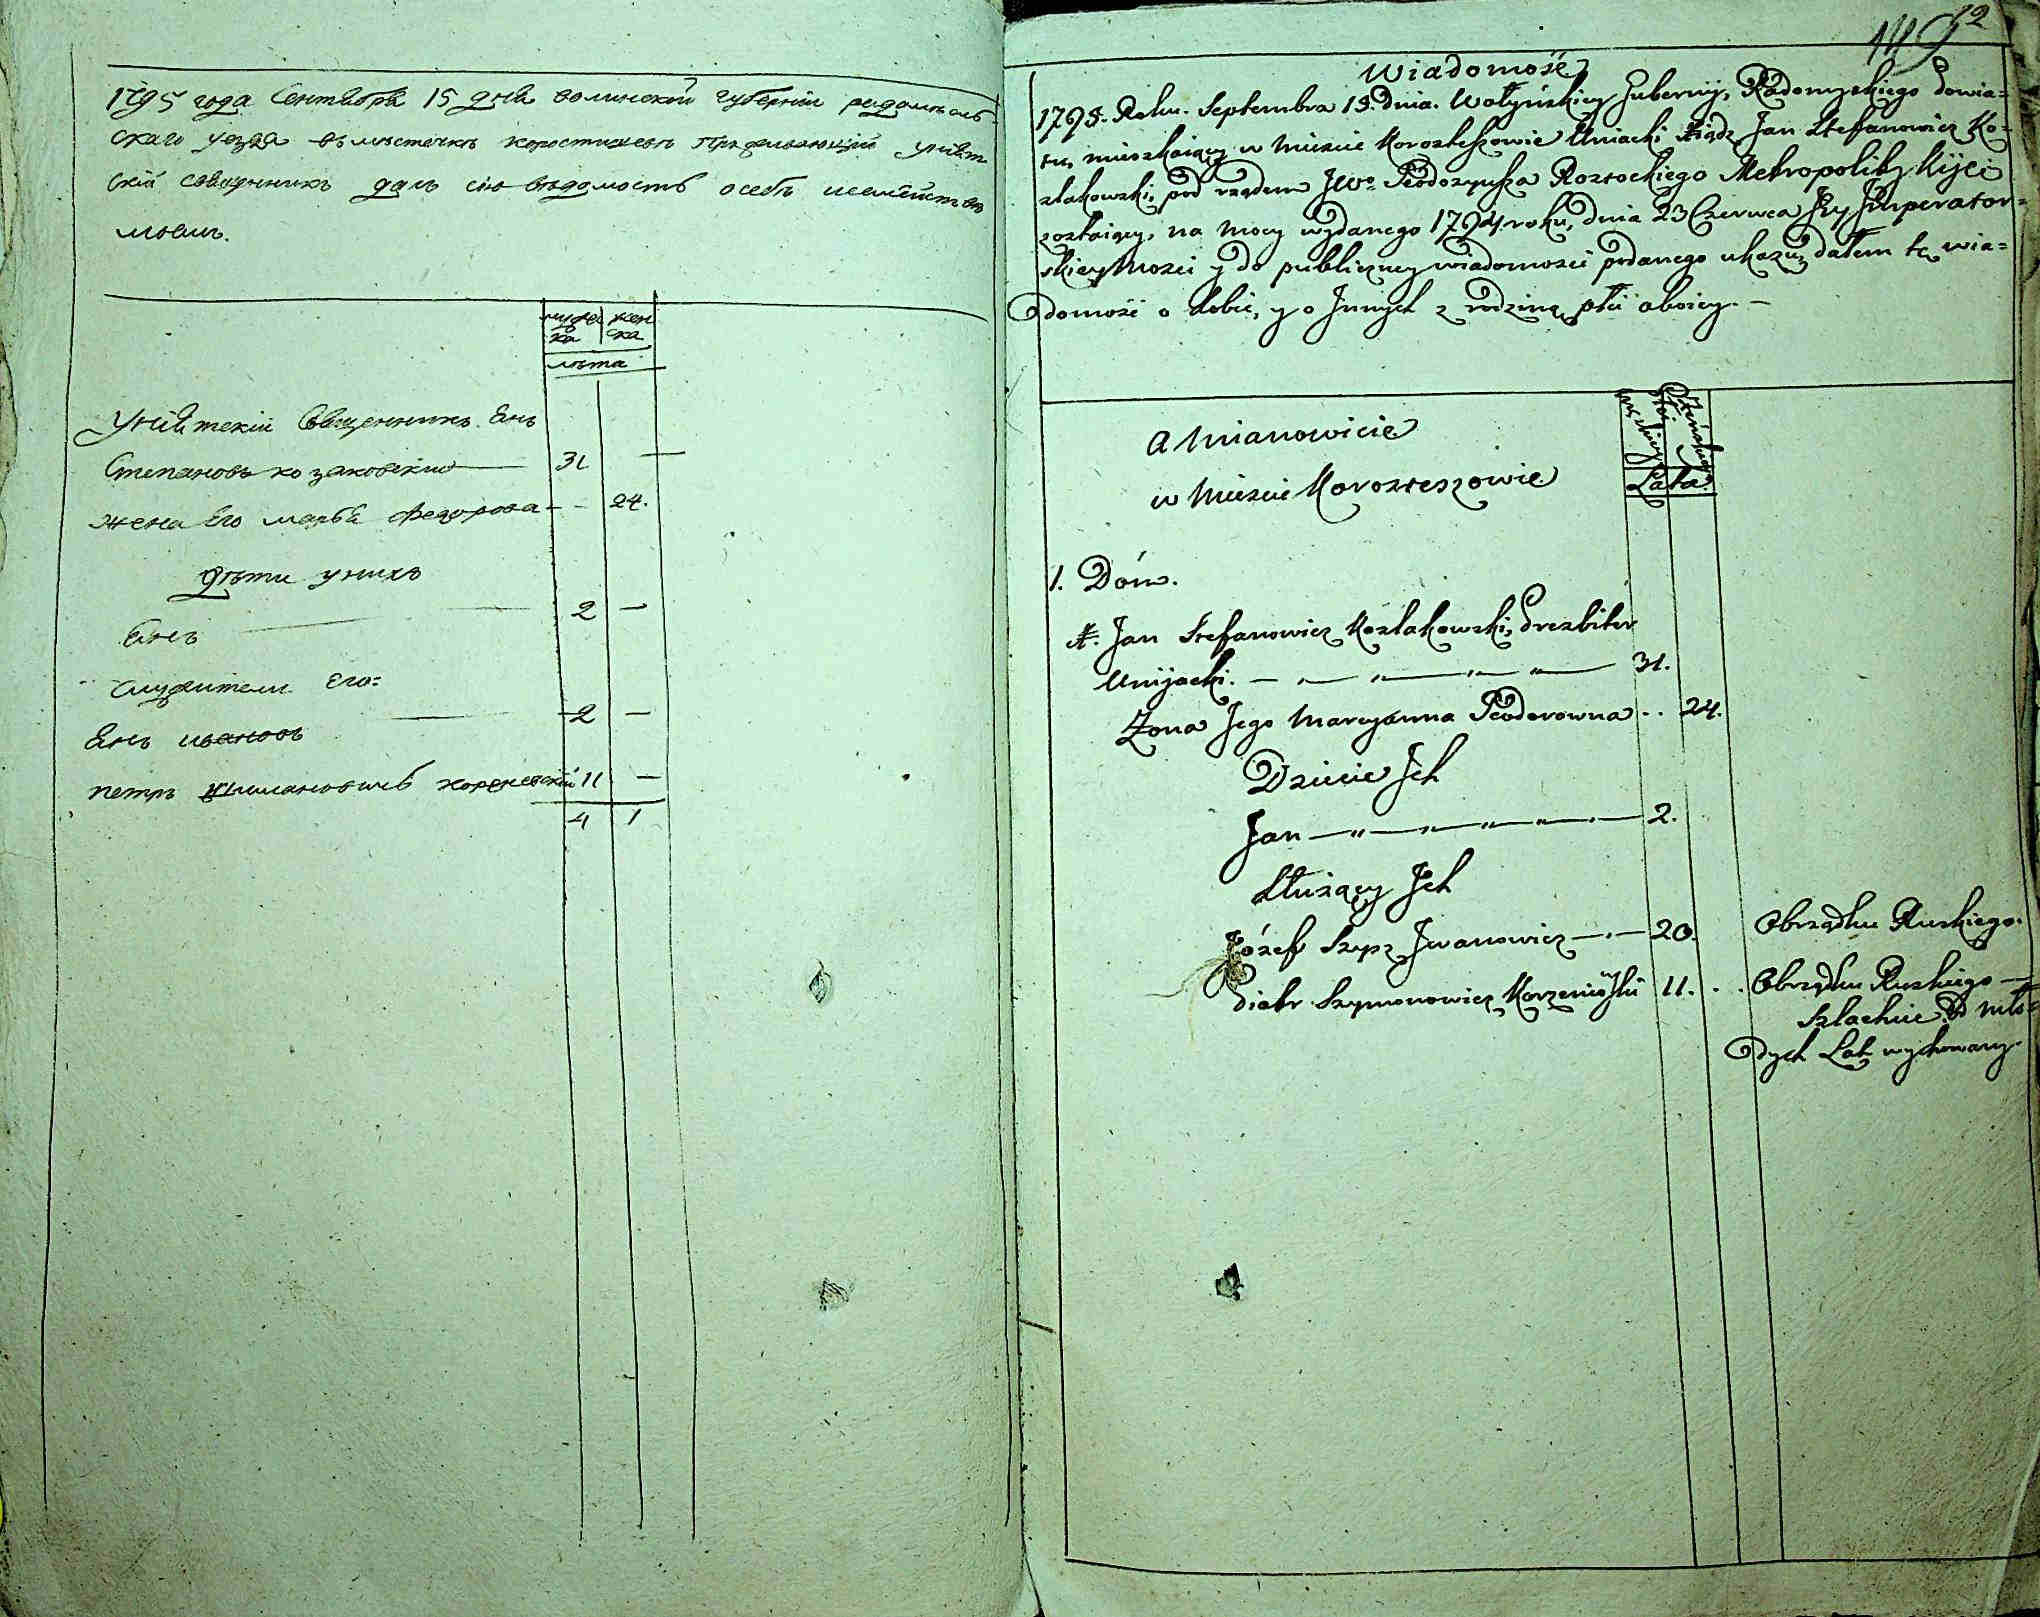 1795 года Сентября 15 дня волинской губернии радомысль
скаго уезда въ местечке коростишеве пребывающий униат
ский священникъ далъ сию ведомость о себе и семействе
моемъ.
мужес ка
женска
лета
Униатский Священникъ Янъ
Степановъ козаковский 31 —
жена его марья федорова - - 24.
дети у нихъ
Янъ 2 —
служители его:
Янъ ивановъ 2 —
петръ шимановичъ кореневский 11 —
4 1
12
Wiadomość
1795. Roku. Septembra 15. Dnia. Wołyńskiey Guberny, Radomyskiego Powia=
tu, mieszkaiący w Mieście Korosteszowie Uniacki Xiądz Jan Stefanowicz Ko=
złakowski, pod rządem JWo. Teodozyusza Rostockiego Metropolity Kijei
zostaiący, na mocy wydanego 1794. roku, dnia 23 Czerwca Jey Jmperator=
skiey Mości y do publiczney wiadomości podanego ukazu, dałem tę wia=
domość o sobie, y o Jnnych z rodziną płci oboiey. —
Płci męskiey
Żeńskiey
Lata.
A Mianowicie
w Mieście Korosteszowie.
1. Dóm.
X. Jan Stefanowicz Kozłakowski, Prezbiter
Unijacki. — „ — „ — „ — „ — 31.
Żona Jego Maryanna Teodorowna . . 24.
Dziecie Jch
Jan — „ — „ — „ — „ — 2.
Służący Jch
Józef Szpz Jwanowicz — „ — 20. Obrządku Ruskiego.
Piotr Szymonowicz Korzeniowski 11. . . Obrządku Ruskiego —
Szlachcic od mło=
dych Lat wychowany.